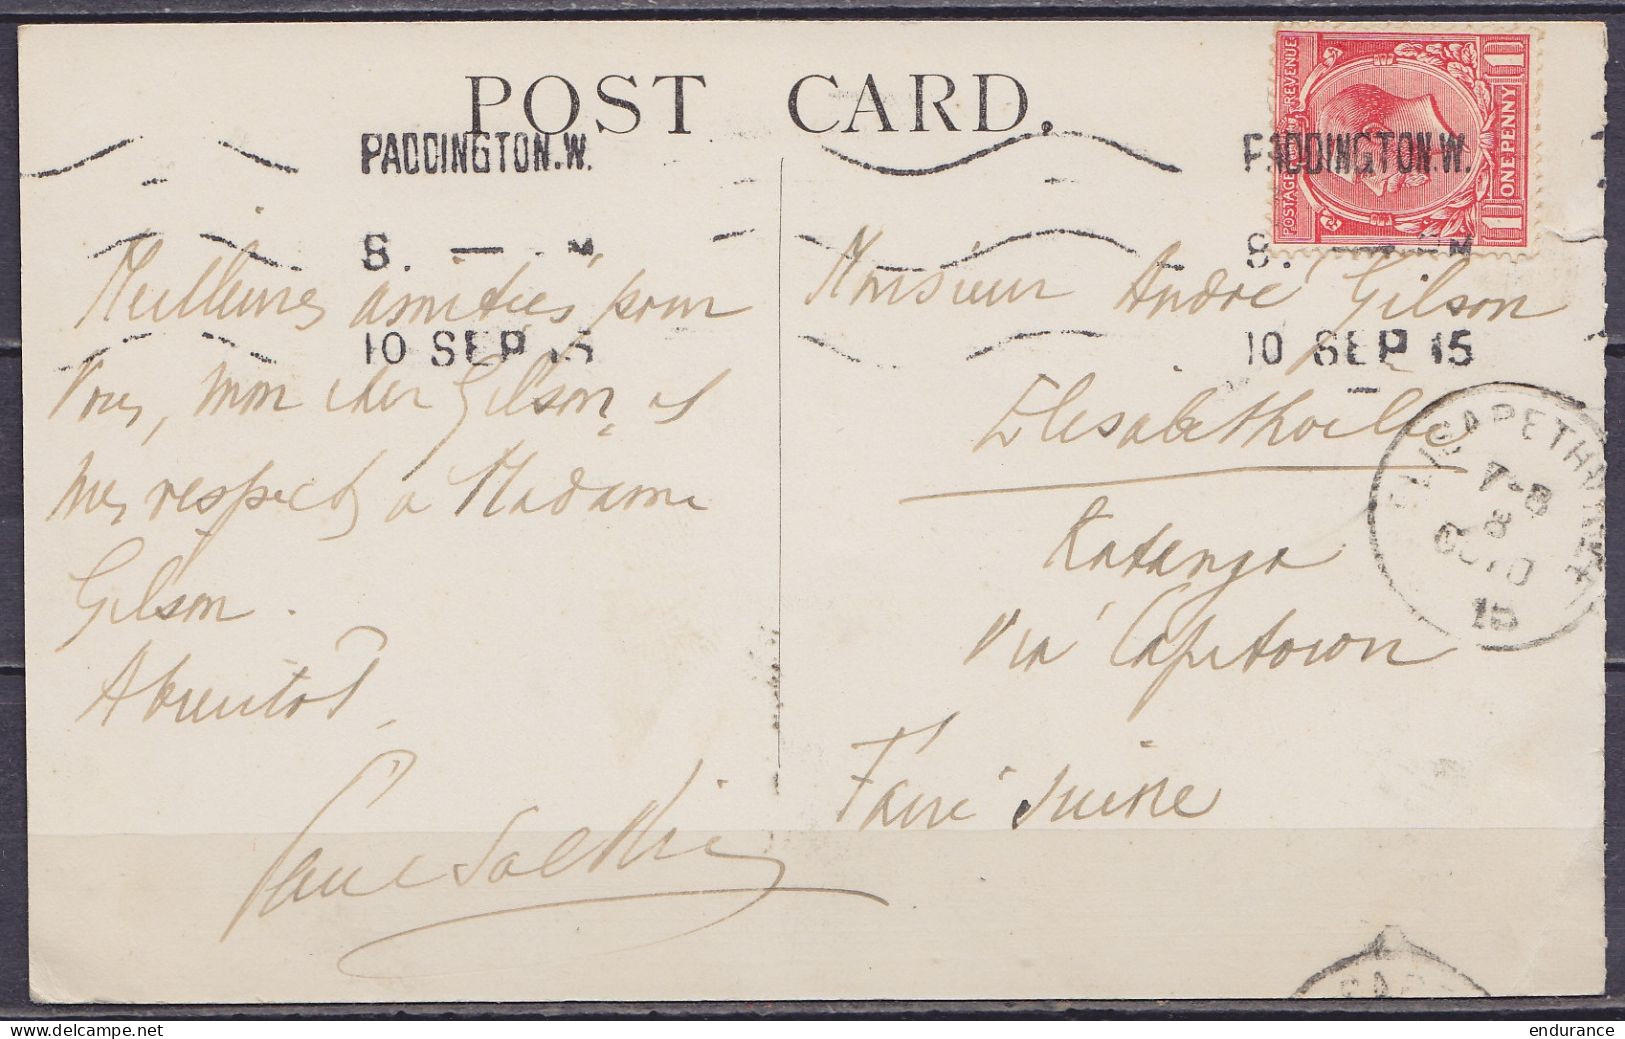 POST CARD.
PADDINGTON.W.
8. — M
10 SEP 15
PADDINGTON.W.
8. — PM
10 SEP 15
POSTAGE REVENUE
ONE PENNY
1 1
Meilleures amitiés pour
vous, mon cher Gilson, et
mes respects à Madame
Gilson.
A bientôt,
Monsieur André Gilson
Elisabethville
Katanga
Via Capetown
Faire suivre
7-8
8
15
CAPE
endurance